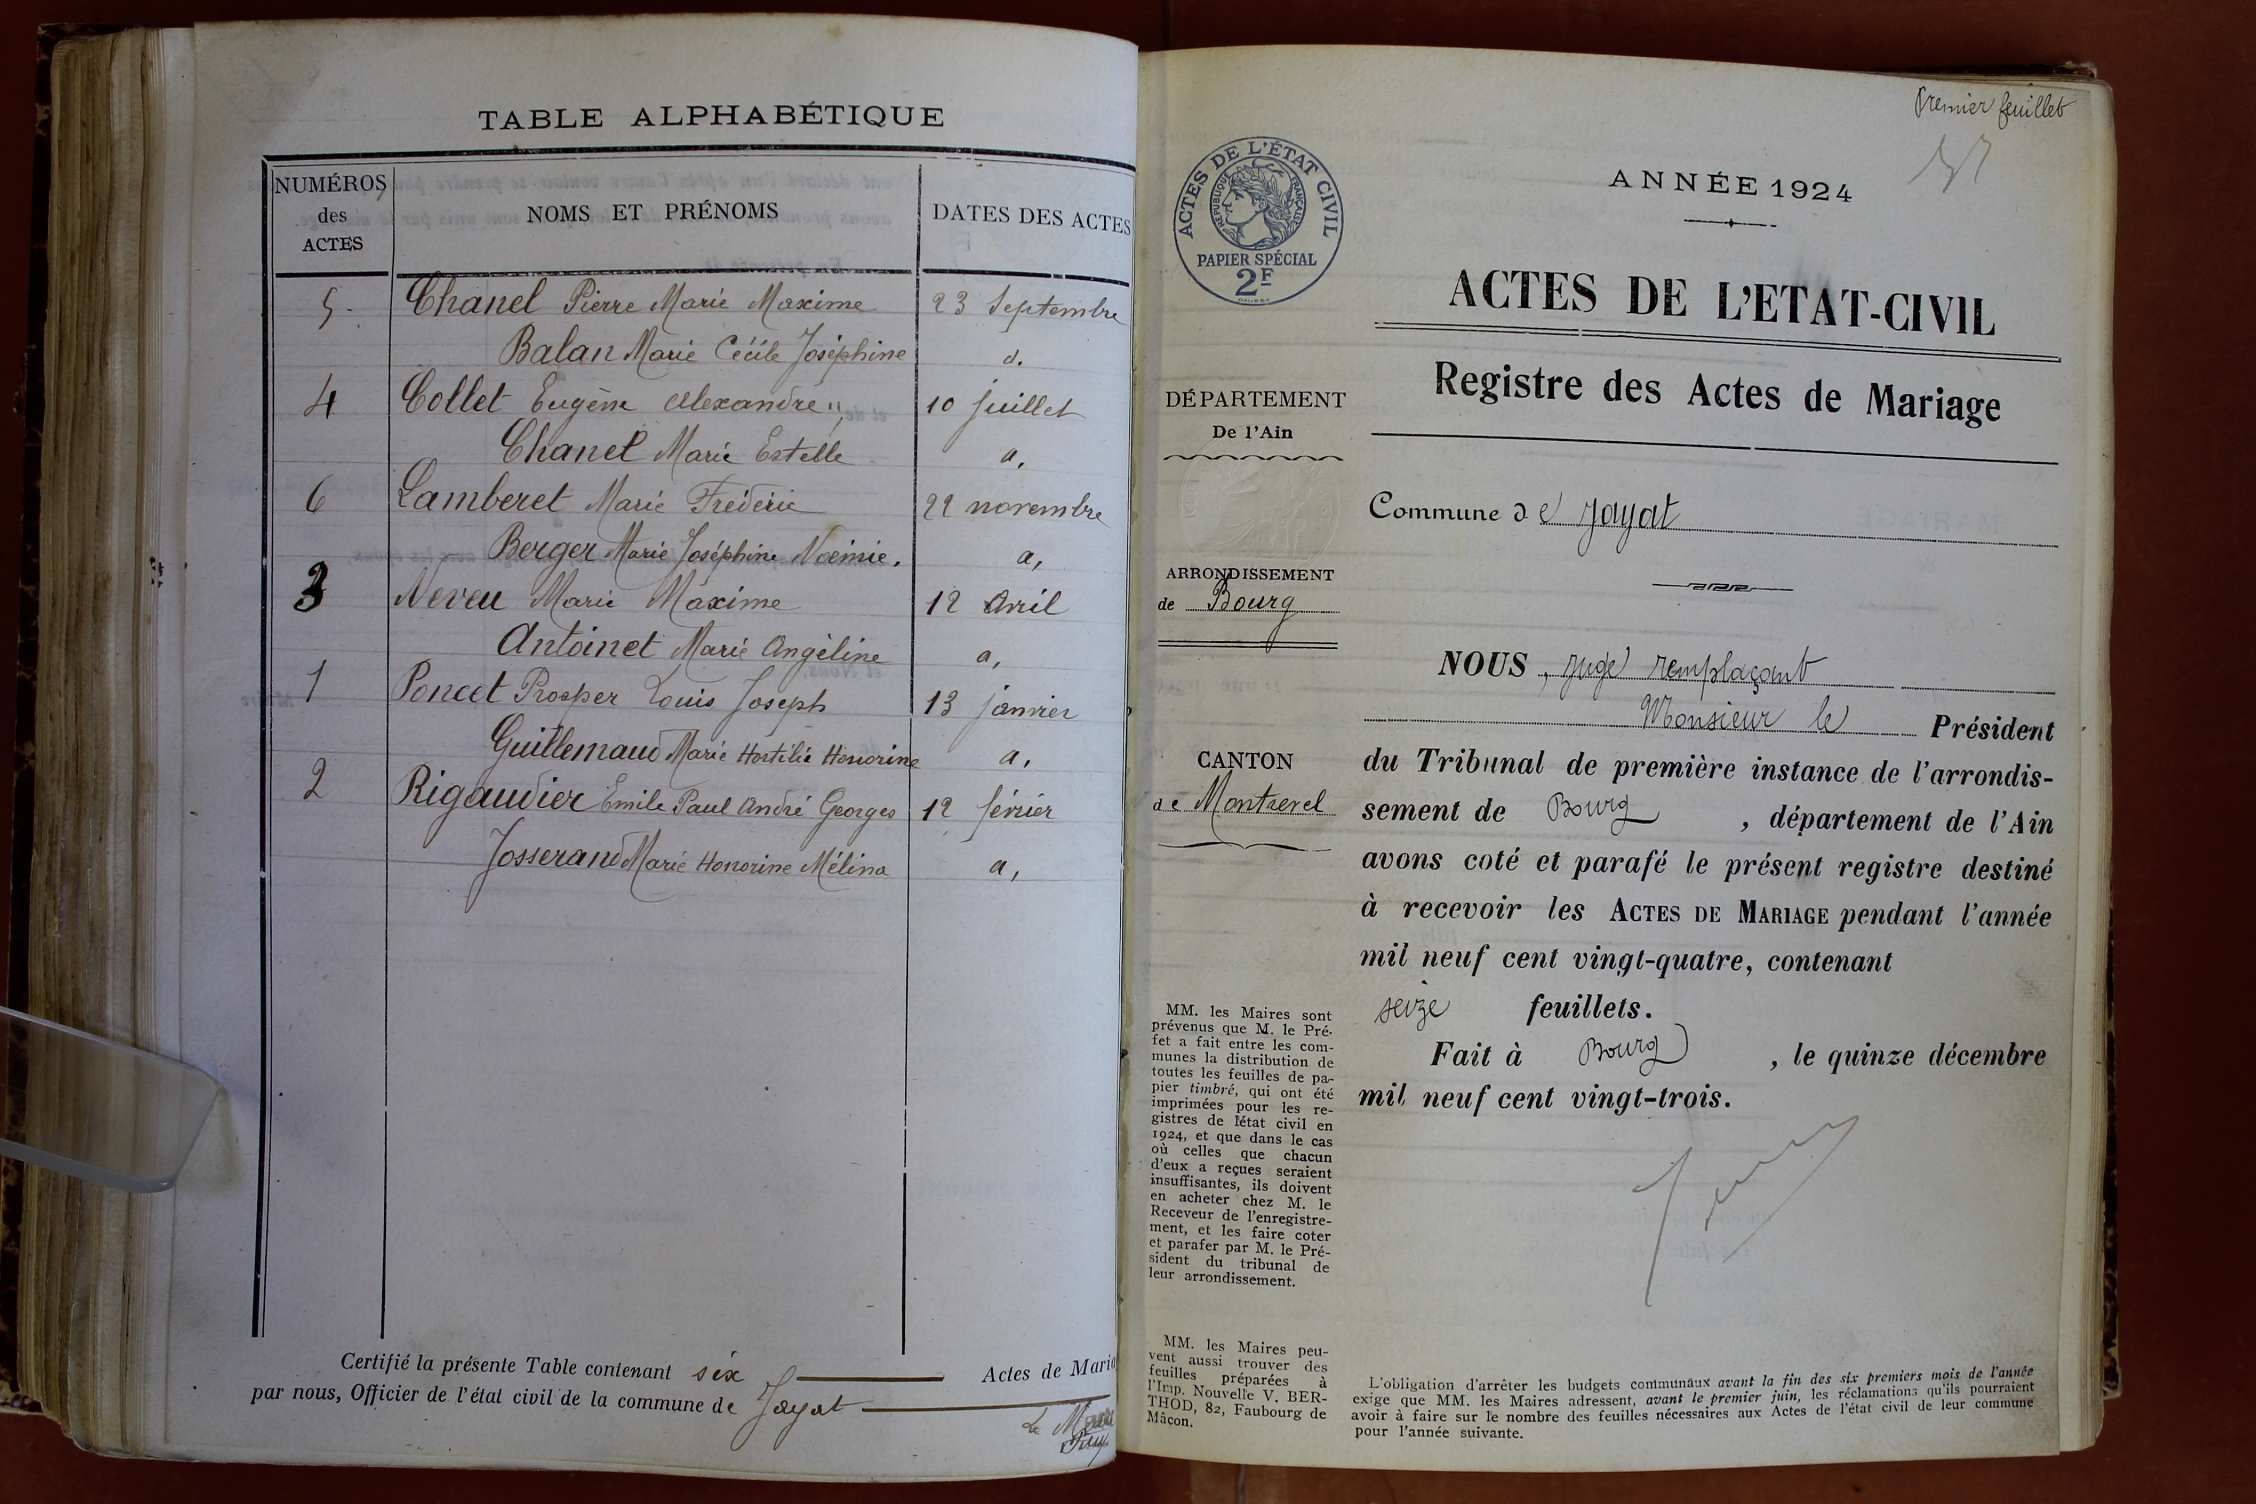 TABLE ALPHABÉTIQUE
NUMÉROS
des
ACTES
NOMS ET PRÉNOMS
DATES DES ACTES
5. Chanel Pierre Marie Maxime 23 Septembre
Balan Marie Cécile Joséphine d.
4 Collet Eugène Alexandre 10 juillet
Chanel Marie Estelle a,
6 Lamberet Marie Fréderic 22 novembre
Berger Marie Joséphine Noëmie. a,
3 Neveu Marie Maxime 12 Avril
Antoinet Marie Angèline a,
1 Poncet Prosper Louis Joseph 13 janvier
Guillemaud Marie Hortilie Honorine a,
2 Rigaudier Emile Paul André Georges 12 février
Josserand Marie Honorine Mélina a,
Certifié la présente Table contenant six Actes de Maria
par nous, Officier de l'état civil de la commune de Jayat
Le Maire
Premier feuillet
ACTES DE L'ÉTAT CIVIL
RÉPUBLIQUE FRANÇAISE
PAPIER SPÉCIAL
2F
ANNÉE 1924
ACTES DE L'ETAT-CIVIL
Registre des Actes de Mariage
DÉPARTEMENT
De l'Ain
Commune de Jayat
ARRONDISSEMENT
de Bourg
CANTON
de Montrevel
NOUS, juge remplaçant
Monsieur le Président
du Tribunal de première instance de l'arrondis-
sement de Bourg, département de l'Ain
avons coté et parafé le présent registre destiné
à recevoir les ACTES DE MARIAGE pendant l'année
mil neuf cent vingt-quatre, contenant
seize feuillets.
Fait à Bourg, le quinze décembre
mil neuf cent vingt-trois.
MM. les Maires sont
prévenus que M. le Pré-
fet a fait entre les com-
munes la distribution de
toutes les feuilles de pa-
pier timbré, qui ont été
imprimées pour les re-
gistres de l'état civil en
1924, et que dans le cas
où celles que chacun
d'eux a reçues seraient
insuffisantes, ils doivent
en acheter chez M. le
Receveur de l'enregistre-
ment, et les faire coter
et parafer par M. le Pré-
sident du tribunal de
leur arrondissement.
MM. les Maires peu-
vent aussi trouver des
feuilles préparées à
l'Imp. Nouvelle V. BER-
THOD, 82, Faubourg de
Mâcon.
L'obligation d'arrêter les budgets communaux avant la fin des six premiers mois de l'année
exige que MM. les Maires adressent, avant le premier juin, les réclamations qu'ils pourraient
avoir à faire sur le nombre des feuilles nécessaires aux Actes de l'état civil de leur commune
pour l'année suivante.